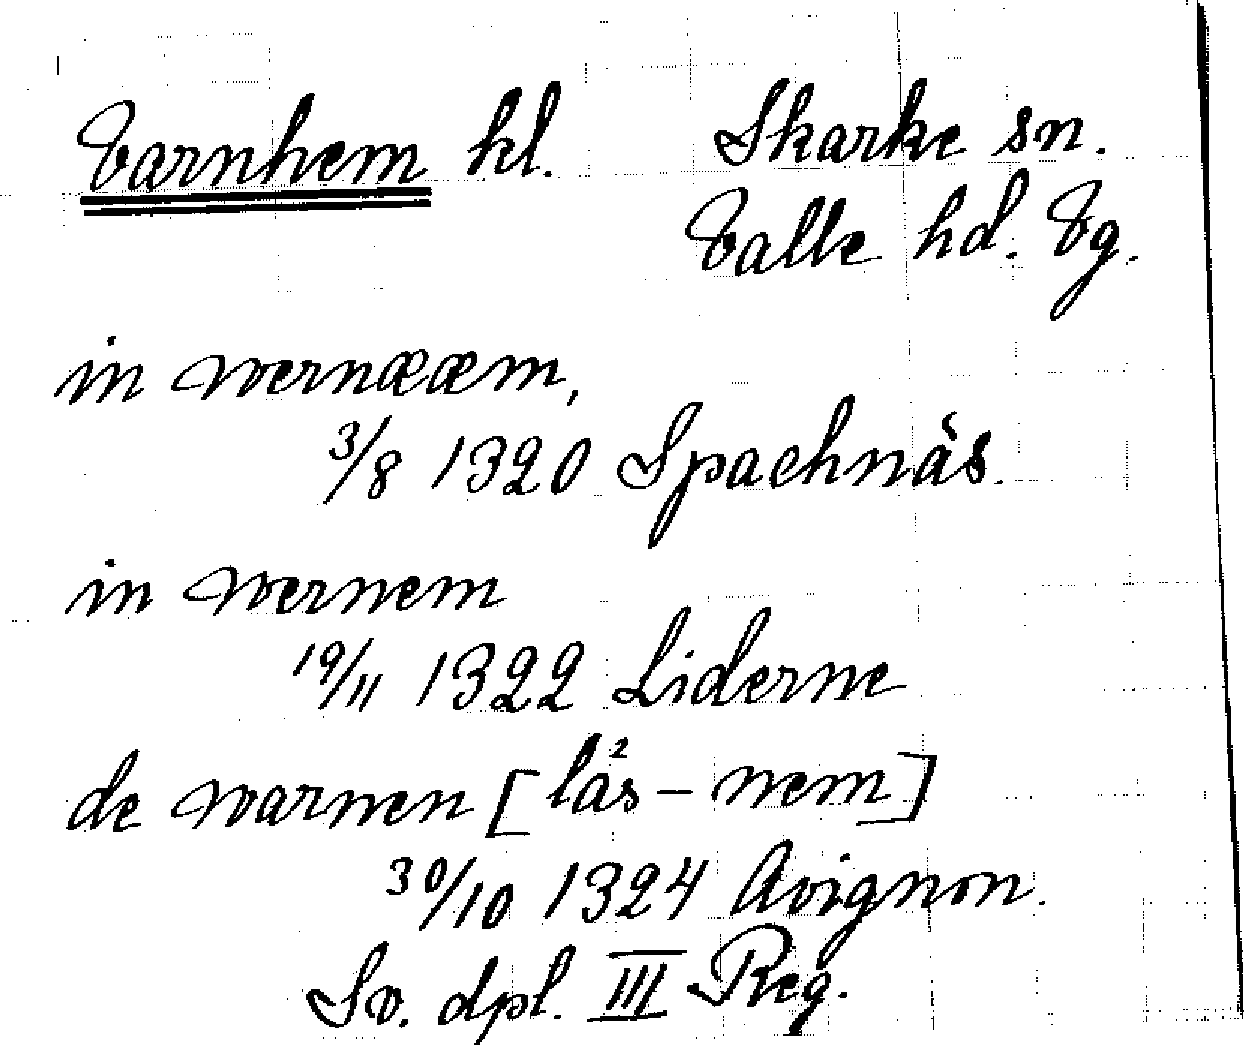 Varnhem kl. Skarke sn.
Valle hd. Vg.
in wernææm,
3/8 1320 Spachnäs.
in wernem
19/11 1322 Liderne
de warnen [läs - nem]
30/10 1324 Avignon.
Sv. dpl. III Reg.